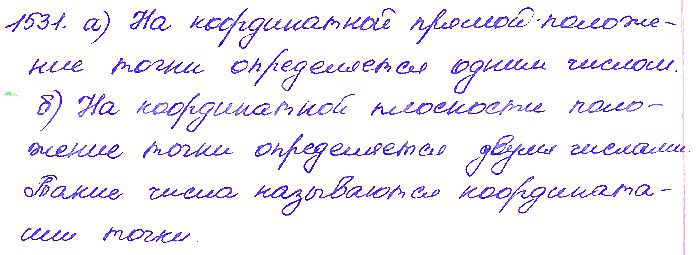 1531. а) На координатной прямой положе-
ние точки определяется одним числом.
б) На координатной плоскости поло-
жение точки определяется двумя числами.
Такие числа называются координата-
ми точки.